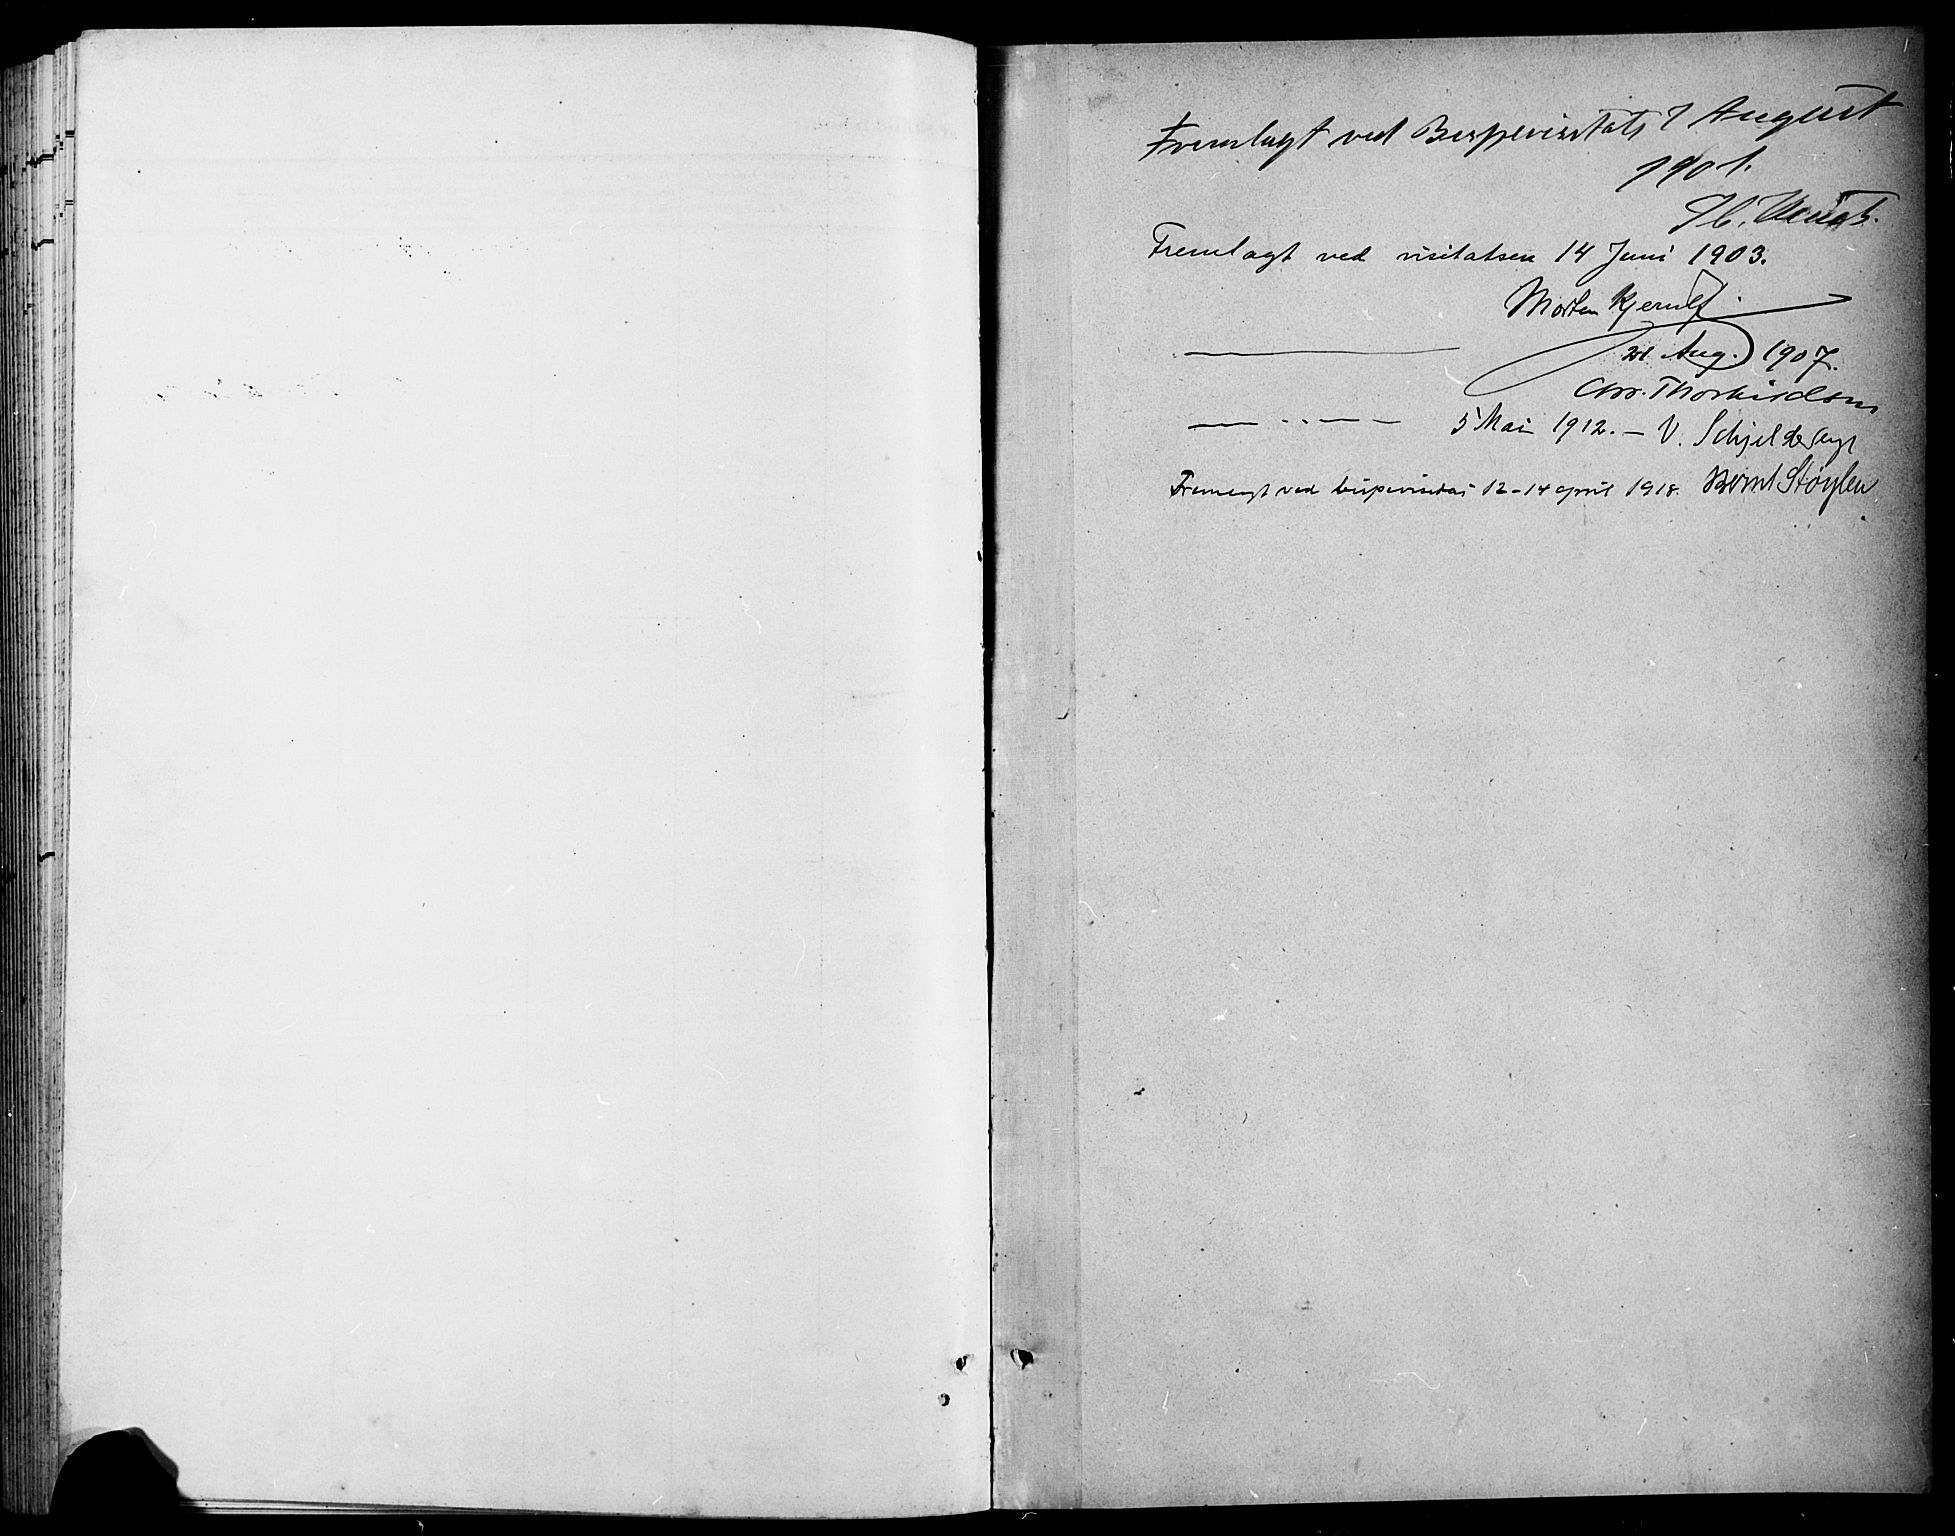 Fremlagt ved Bispevisitats 7 August
1901.
Fremlagt ved visitatsen 14 Juni 1903.
Morten Kjerulf.
21 Aug. 1907.
Chr. Thorkildsen
5 Mai 1912. – V. Schjelderup
Fremlagt ved bispevisitas 12-14 april 1918. Bernt Støylen